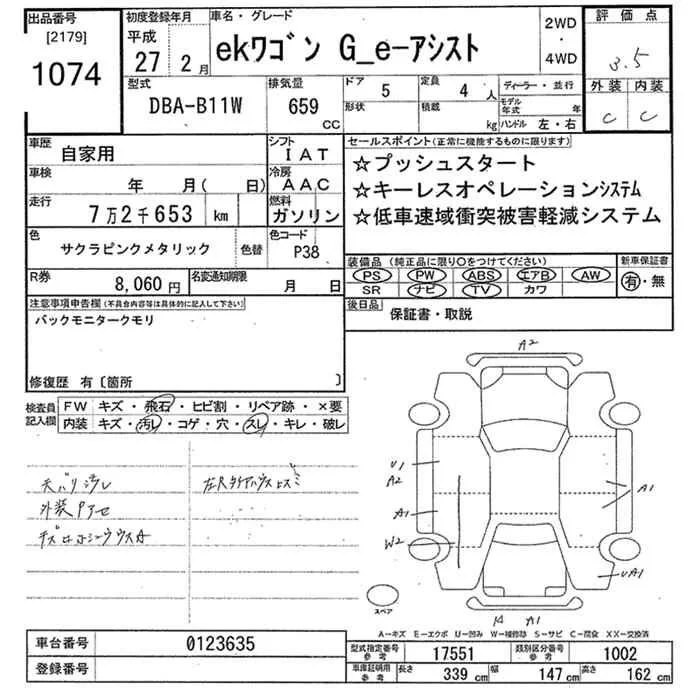 出品番号
[2179]
1074
初度登録年月
平成
27 2 月
車名・グレード
ekワゴン G_e-アシスト
2WD
・
4WD
評価点
3.5
外装 内装
C C
型式
DBA-B11W
排気量
659
CC
ドア 5
形状
定員 4 人
積載 kg
ディーラー・並行
モデル年式 年
ハンドル 左・右
車歴 自家用
シフト IAT
車検 年 月( 日)
冷房 AAC
走行 7万2千653 km
燃料 ガソリン
色 サクラピンクメタリック 色替
色コード P38
R券 8,060 円
名変通知期限 月 日
セールスポイント(正常に機能するものに限ります)
☆プッシュスタート
☆キーレスオペレーションシステム
☆低車速域衝突被害軽減システム
装備品 (純正品に限り○をつけてください)
PS PW ABS エアB AW
SR ナビ TV カワ
新車保証書
有・無
後日品 保証書・取説
注意事項申告欄(不具合内容等は具体的に記入して下さい)
バックモニタークモリ
修復歴 有〔箇所 〕
検査員記入欄
FW キズ・飛石・ヒビ割・リペア跡・×要
内装 キズ・汚レ・コゲ・穴・スレ・キレ・破レ
天バリ汚レ
外装
A2
U1
A2
A1
W2
A1
UA1
A1
スペア
A-キズ E-エクボ U-凹み W-補修跡 S-サビ C-腐食 XX-交換済
車台番号 0123635
登録番号
型式指定番号 参考 17551
類別区分番号 参考 1002
車庫証明用 参考 長さ 339 cm 幅 147 cm 高さ 162 cm